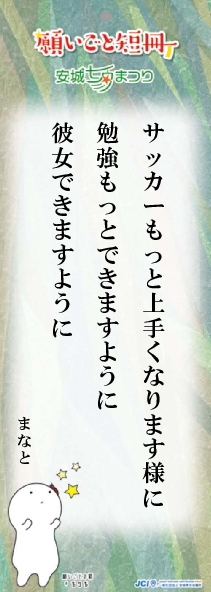 願いごと短冊
安城七夕まつり
サッカーもっと上手くなります様に
勉強もっとできますように
彼女できますように
まなと
JCI